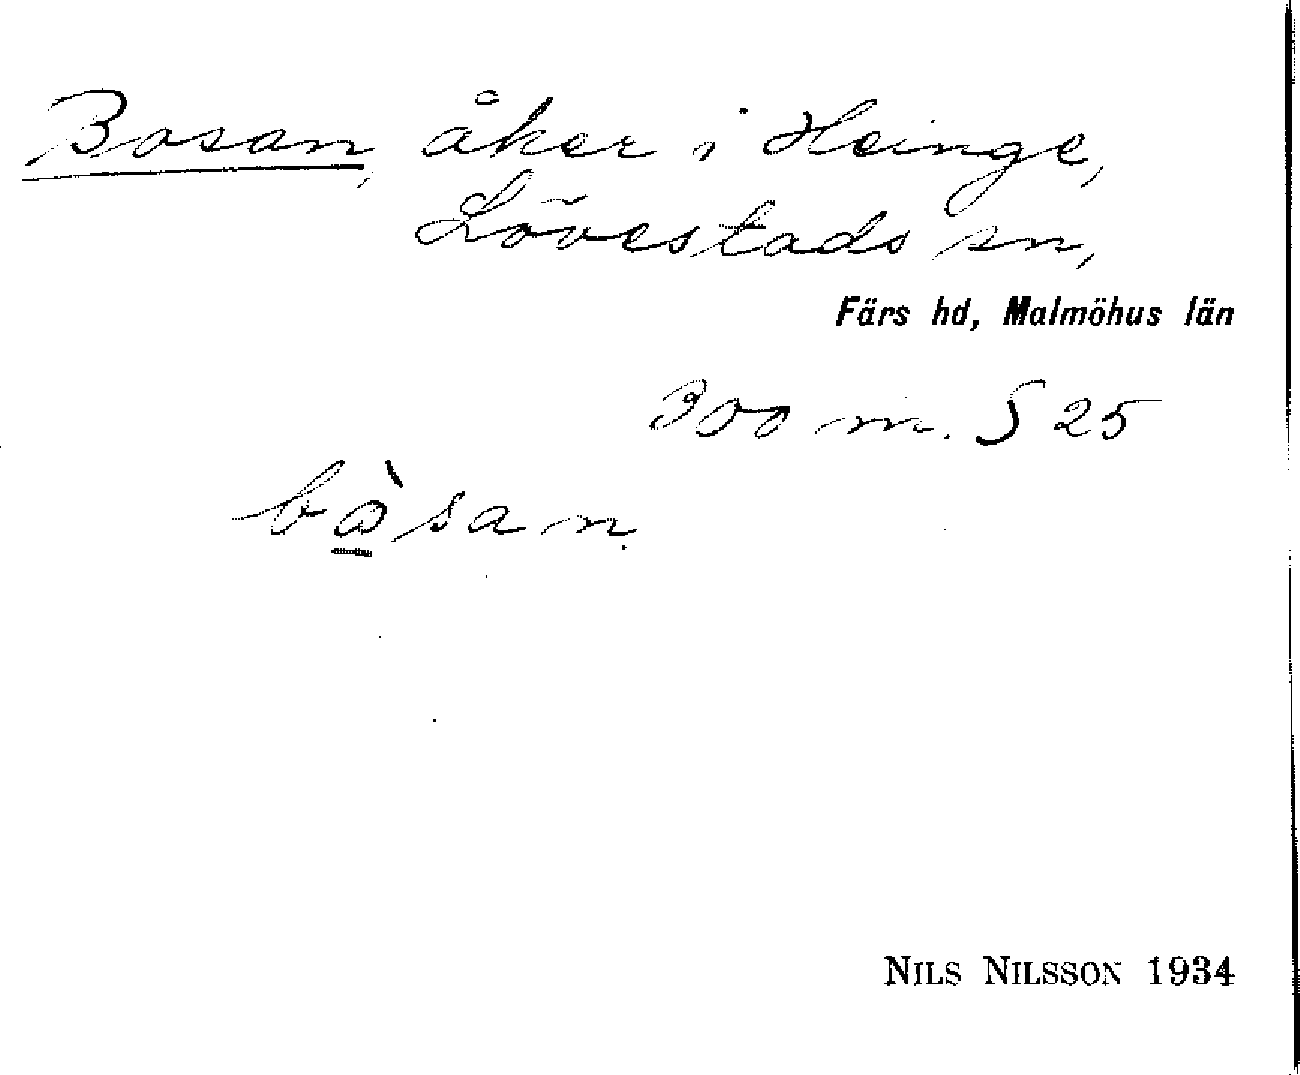 Bosan, åker i Heinge,
Lövestads sn,
Färs hd, Malmöhus län
300 m. S 25
bòsan.
NILS NILSSON 1934